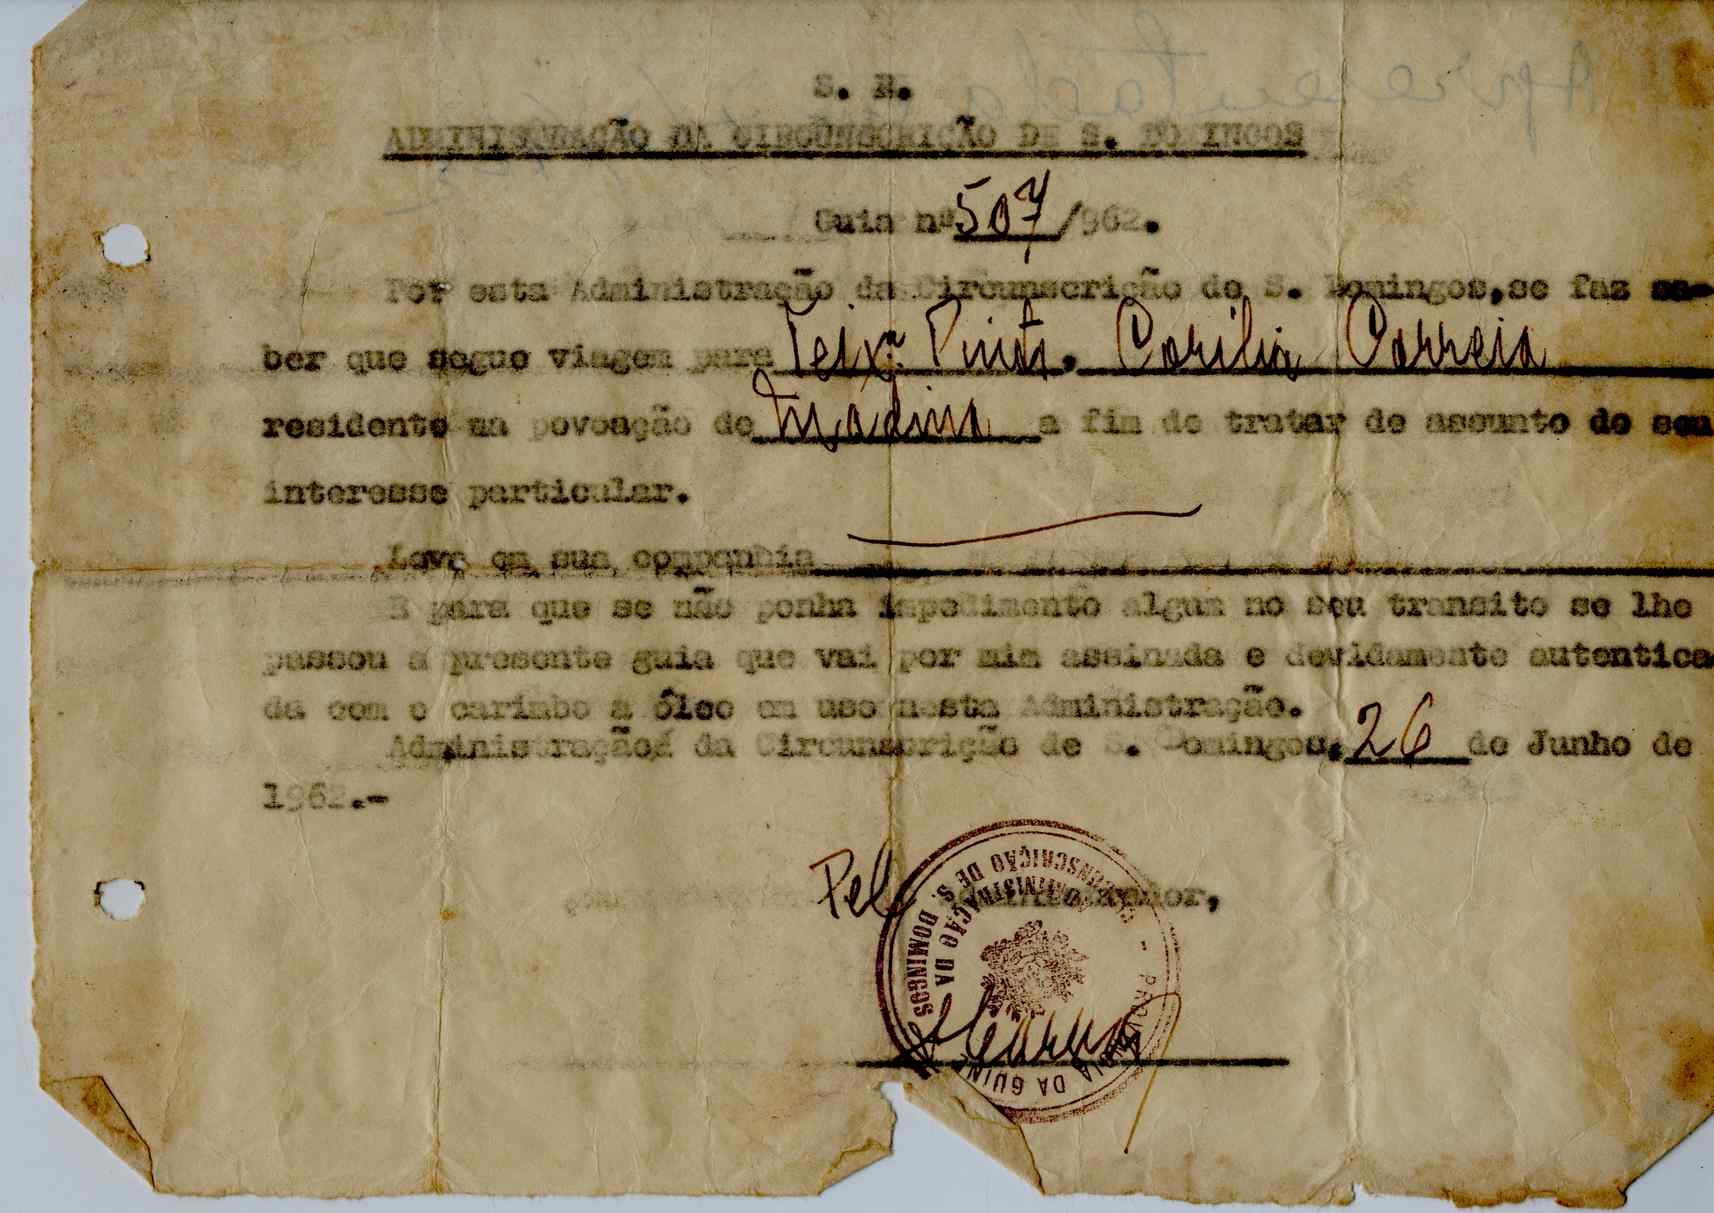 S. R.
ADMINISTRAÇÃO DA CIRCUNSCRIÇÃO DE S. DOMINGOS
Guia nº 507/962.
Por esta Administração da Circunscrição de S. Domingos,se faz sa-
ber que segue viagem para Teixª Pinto, Correia
residente na povoação de Madina a fim de tratar de assunto de seu
interesse particular.
Leva em sua companhia
E para que se não ponha impedimento algum no seu transito se lhe
passou a presente guia que vai por mim assinada e devidamente autentica
da com o carimbo a óleo em uso nesta Administração.
Administração da Circunscrição de S. Domingos, 26 de Junho de
1962.-
Pel Administrador,
PROVINCIA DA GUINÉ - ADMINISTRAÇÃO DA CIRCUNSCRIÇÃO DE S. DOMINGOS
Apresentada